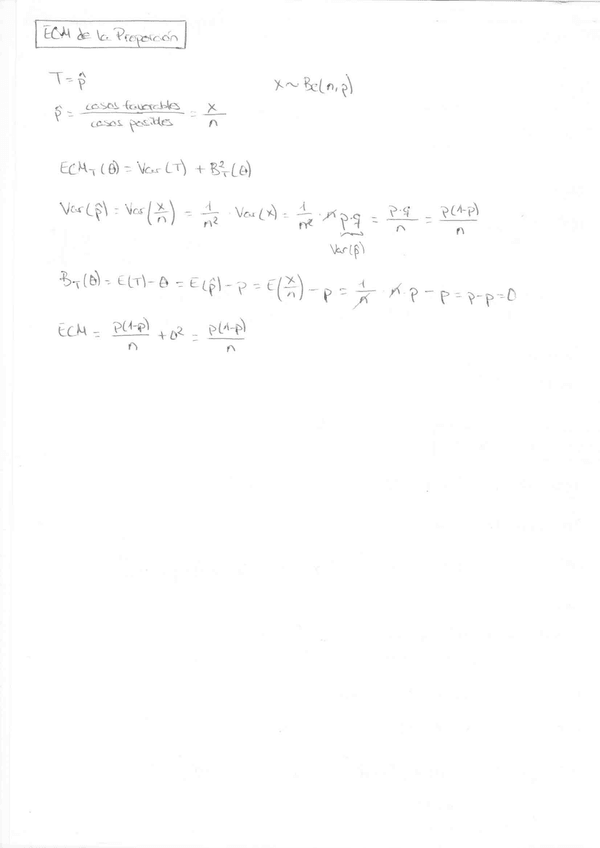 ECM de la Proporción
T = p̂
X ~ Be(n,p)
p̂ = casos favorables / casos posibles = x/n
ECM_T(θ) = Var(T) + B_T²(θ)
Var(p̂) = Var(x/n) = 1/n² · Var(x) = 1/n² · n p·q = p·q/n = p(1-p)/n
Var(p̂)
B_T(θ) = E(T) - θ = E(p̂) - p = E(x/n) - p = 1/n · n p - p = p - p = 0
ECM = p(1-p)/n + 0² = p(1-p)/n